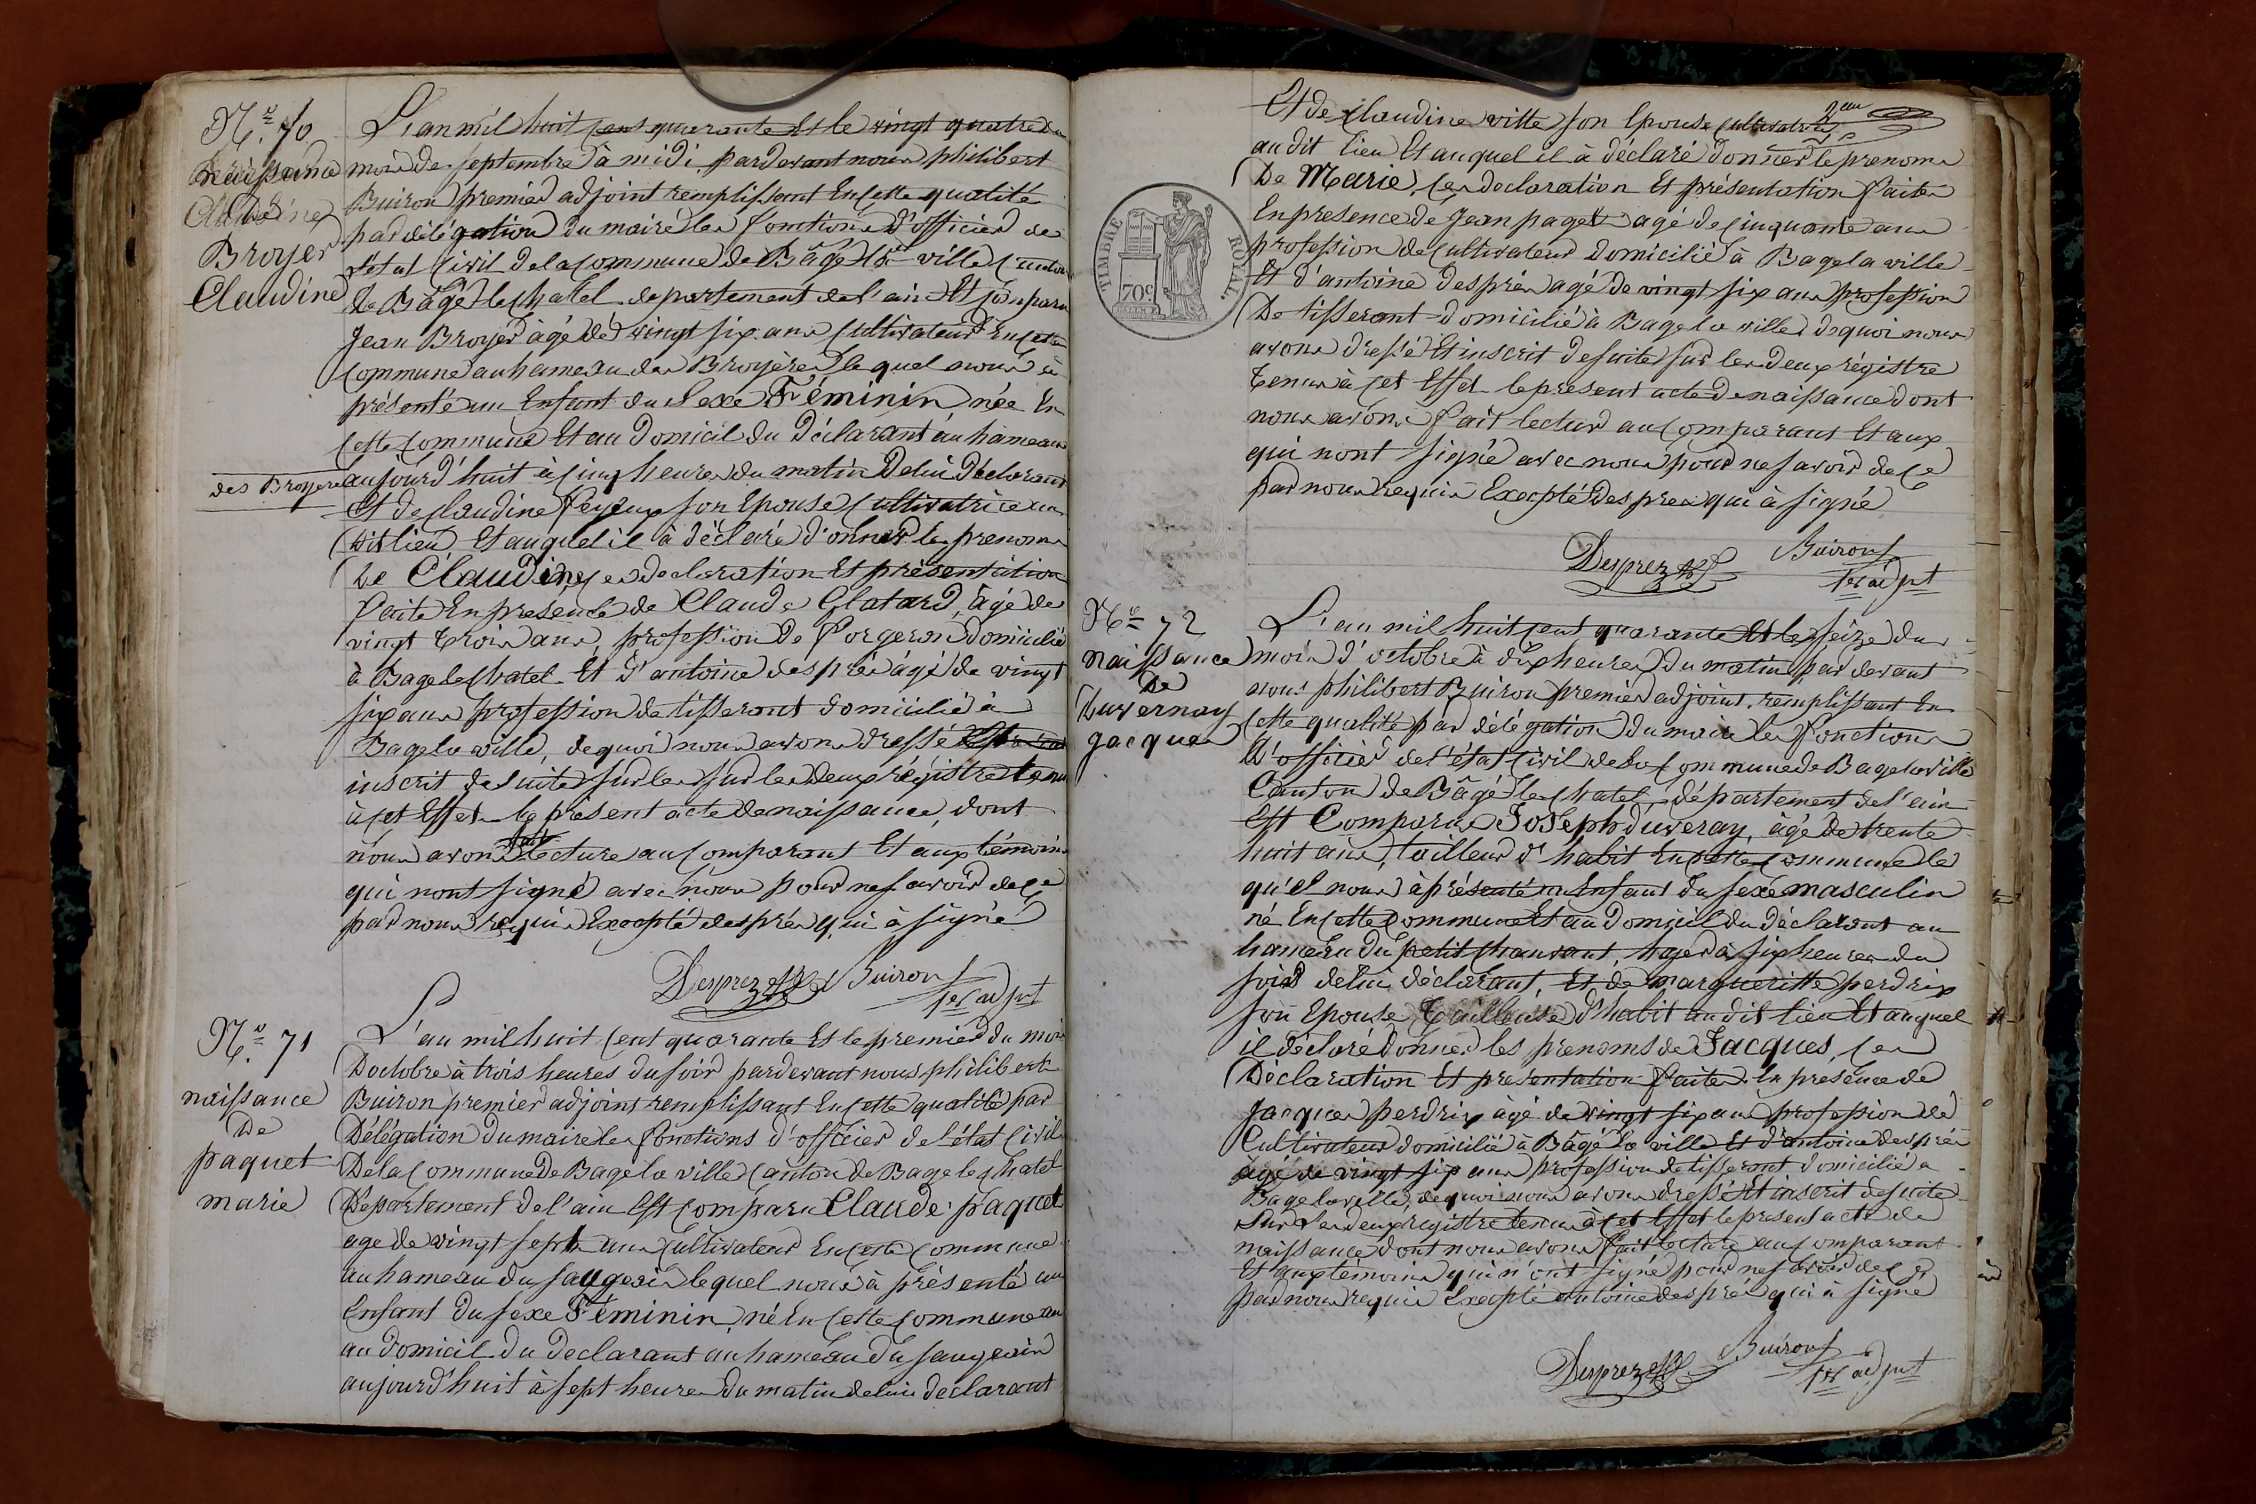 N.o 70
Naissance
Claudine
Broyer
Claudine
L'an mil huit cent quarante Et le vingt quatre du
mois de septembre à midi pardevant nous philibert
Buiron premier adjoint remplissant En cette qualité
par délégation du maire les fonctions d'officier de
l'état Civil de la Commune de Bâgé la ville Canton
de Bâgé le Chatel departement de l'ain Est Comparu
Jean Broyer âgé de vingt six ans Cultivateur En cette
Commune au hameau des Broyères lequel nous à
présenté un Enfant du Sexe Féminin née En
Cette Commune Et au Domicil du Déclarant au hameau
des Broyere aujourd'huit à Cinq heures du matin De lui Déclarant
Et de Claudine feyeux son Epouse Cultivatrice au
Dit lieu Et auquel il à déclaré donner les prenoms
De Claudine, Ces declaration Et présentation
faite En presence de Claude Glatard, âgé de
vingt trois ans, profession De forgeron domicilié
à Bage le Chatel Et d'antoine després âgé de vingt
six ans profession de tisserant domicilié à
Bage la ville, de quoi nous avons dressé Et
inscrit de suite sur les sur les deux régistre tenus
à cet Effet le présent acte de naissance, dont
nous avons fait lecture au Comparant Et aux témoins
qui nont signé avec nous pour ne savoir de ce
par nous requis Excepté després qui à signé
Desprez Buiron
1er adjnt
N.o 71
naissance
De
paquet
marie
L'an mil huit Cent quarante Et le premier du mois
D'octobre à trois heures du soir pardevant nous philibert
Buiron premier adjoint remplissant En cette qualité par
Délégation du maire les fonctions d'officier de l'état Civil
De la Commune De Bage la ville Canton de Bage le Chatel
Département de l'ain Est Comparu Claude paquet
age de vingt sept ans Cultivateur En cette Commune
au hameau du saugerin lequel nous à présenté un
Enfant du sexe Féminin, né En Cette Commune
au domicil du Declarant au hameau du saugerin
aujourd'huit à sept heures du matin de lui declarant
2eme
Et de Claudine ville son Epouse Cultivatrice
au dit lieu Et auquel il à déclaré donner le prenoms
De Marie, Ces declaration Et présentation faite
En presence de Jean paget agé de Cinquante ans
profession de Cultivateur domicilié à Bage la ville
Et d'antoine després agé de vingt six ans profession
De tisserant domicilié à Bage la ville de quoi nous
avons dressé Et inscrit de suite sur les deux régistre
tenus à Cet Effet le présent acte De naissance dont
nous avons fait lectur au Comparant Et aux
qui nont signé avec nous pour ne savoir de ce
par nous requis Excepté despres qui à signé
TIMBRE ROYAL.
70c
Desprez Buiron
1er adjnt
N.o 72
naissance
De
Duvernay
Jacques
L'an mil huit cent quarante Et le seize du
mois d'octobre à dix heures du matin par devant
nous philibert Buiron premier adjoint remplissant En
Cette qualité par délégation du maire les fonctions
D'officier de l'état Civil de la Commune de Bage la ville
Canton de Bâgé le Chatel, département de l'ain
Est Comparu Joseph duveray, âgé de trente
huit ans, tailleur d'habit En cette commune le
qu'el nous à présenté un Enfant du sexe masculin
né En cette Commune Et au domicil du déclarant au
hameau du petit Chanvant, hyer à six heures du
soir de lui déclarant, Et de margueritte perdrix
son Epouse Tailleuse d'habit au dit lieu Et auquel
il déclaré donner les prenoms de Jacques, Ces
Déclaration Et presentation faite En presence de
Jacques perdrix âgé de vingt six ans profession de
Cultivateur domicilié à Bâgé la ville Et d'antoine després
âgé de vingt six ans profession de tisserant domicilié a
Bage la ville, de quoi nous avons dressé Et inscrit de suite
Sur Les deux registre tenus à cet Effet le present acte de
naissance dont nous avons fait lecture au Comparant
Et aux témoins qui n'ont signé pour ne savoir de ce
par nous requis Excepté antoine després qui à signé
Desprez Buiron
1er adjnt